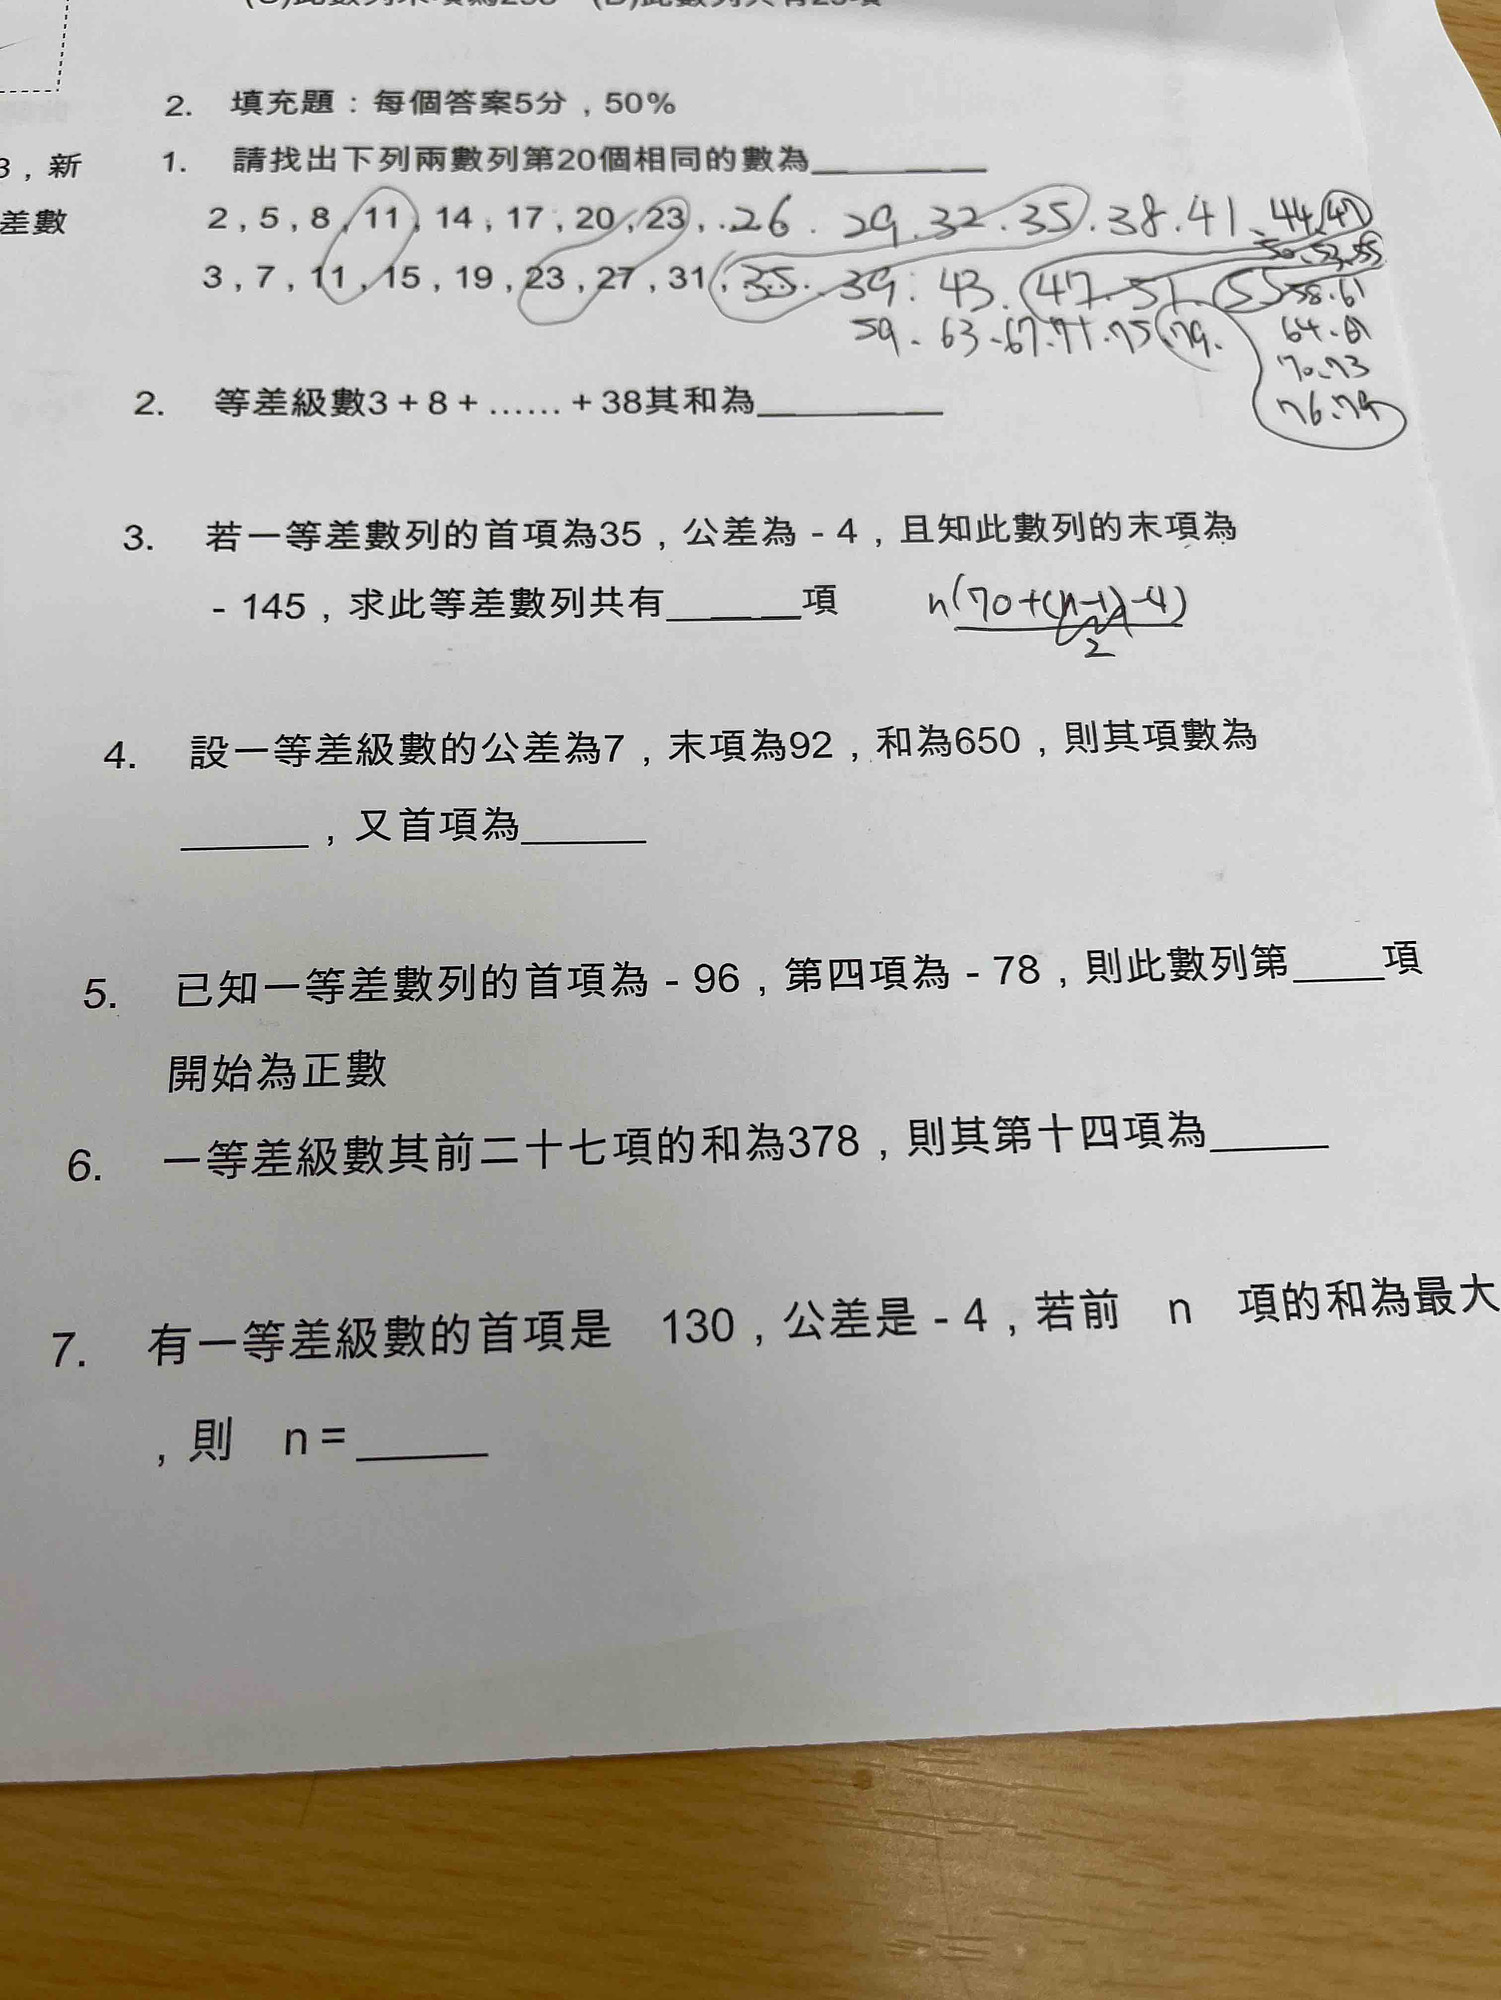 2. 填充題：每個答案5分，50%
3，新
差數
1. 請找出下列兩數列第20個相同的數為__________
2，5，8，11，14，17，20，23，..26．29．32．35．38．41．44．47
50．53．55
3，7，11，15，19，23，27，31，35．39．43．47．51．55 58．61
59．63．67．71．75．79． 64．67
70．73
76．79
2. 等差級數3+8+……+38其和為__________
3. 若一等差數列的首項為35，公差為-4，且知此數列的末項為
-145，求此等差數列共有______項
n(70+(n-1)-4)
2
4. 設一等差級數的公差為7，末項為92，和為650，則其項數為
______，又首項為______
5. 已知一等差數列的首項為-96，第四項為-78，則此數列第____項
開始為正數
6. 一等差級數其前二十七項的和為378，則其第十四項為_____
7. 有一等差級數的首項是 130，公差是-4，若前 n 項的和為最大
，則 n=______